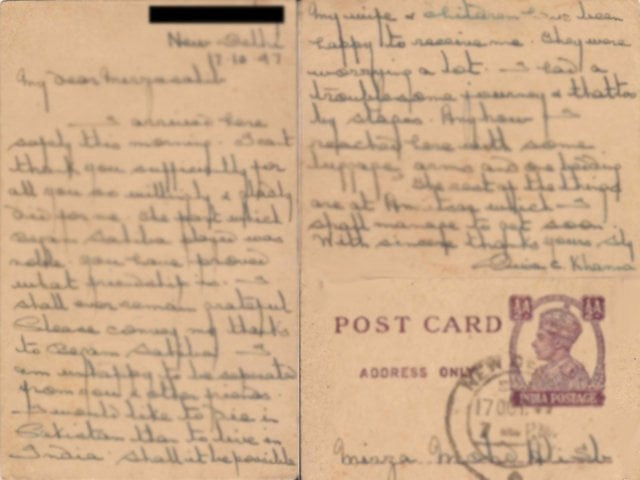 New Delhi
17.10.47
My dear Mirza sahib
I arrived here
safely this morning. I cant
thank you sufficiently for
all you so willingly & gladly
did for me. The part which
Begam Sahiba played was
noble. You have proved
what friendship is. I
shall ever remain grateful
Please convey my thanks
to Begam Sahiba. I
am unhappy to be separated
from you & other friends.
I would like to die in
Pakistan than to live in
India. Shall it be possible
My wife & children have been
happy to receive me. They were
worrying a lot. I had a
troublesome journey & that too
by stages. Anyhow I
reached here with some
luggage, arms and one bedding
The rest of the things
are at Amritsar which I
shall manage to get soon.
With sincere thanks yours sly
C. Khanna
POST CARD
ADDRESS ONLY
INDIA POSTAGE
NEW
17 OCT. 47
7 P.M.
Mirza